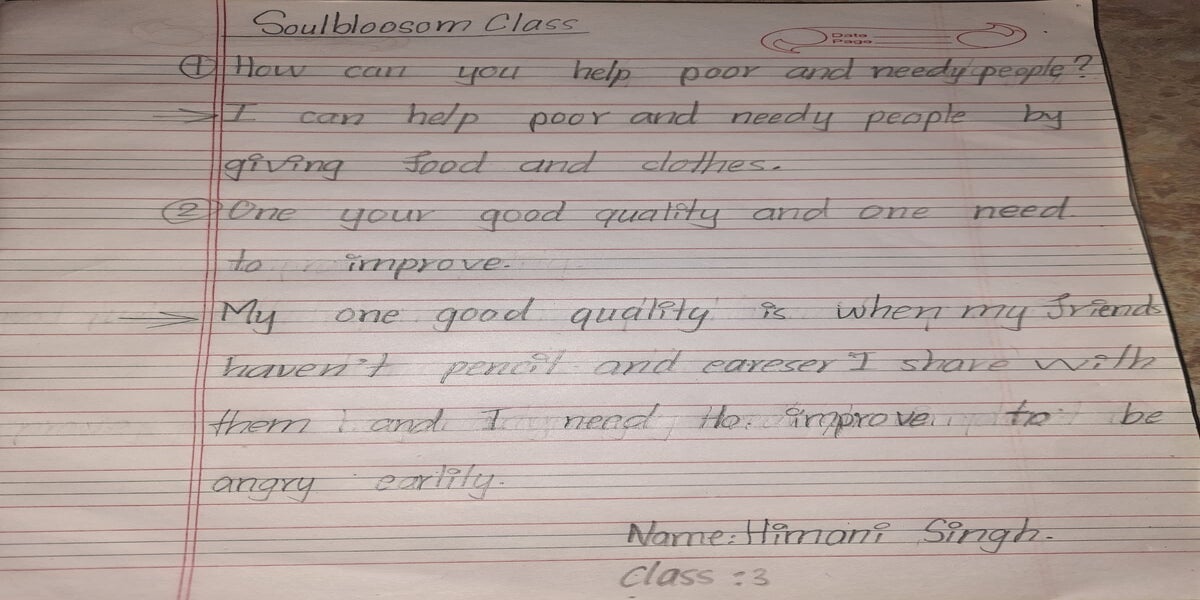 Soulbloosom Class
Date
Page
① How can you help poor and needy people?
⇒ I can help poor and needy people by
giving food and clothes.
② One your good quality and one need
to improve.
⇒ My one good quality is when my friends
haven't pencil and eareser I share with
them and I need to improve to be
angry earlily.
Name: Himani Singh.
Class : 3